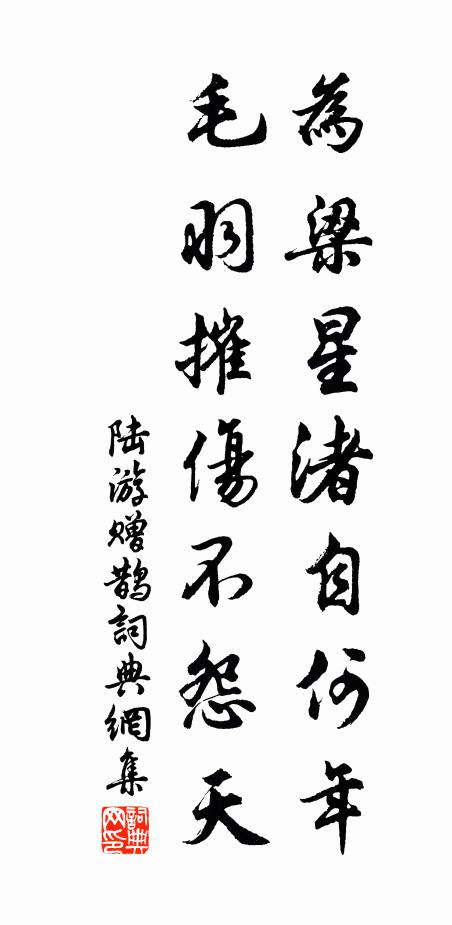 為梁星渚自何年
毛羽摧傷不怨天
陆游赠鹊詞典網集
詞典
网印